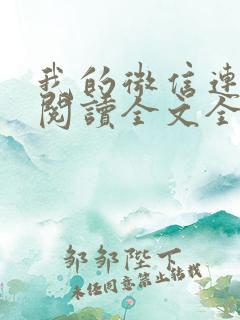 我的微信連
閱讀全文全
邹邹陛下
未经同意禁止转载